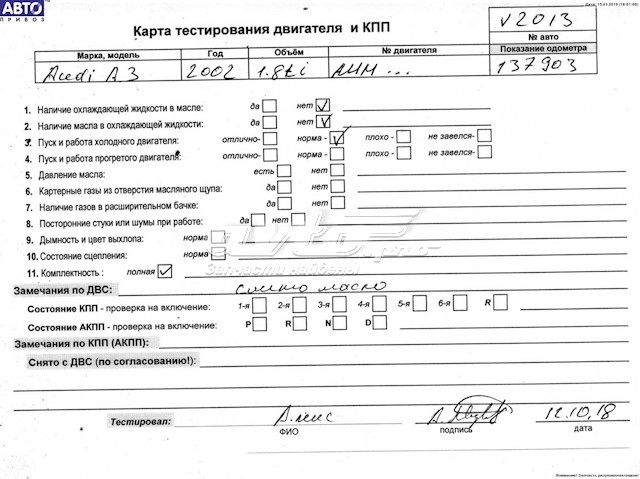 АВТО
ПРИВОЗ
Карта тестирования двигателя и КПП
v2013
№ авто
Марка, модель Год Объём № двигателя Показание одометра
Audi A3 2002 1.8ti 137903
1. Наличие охлаждающей жидкости в масле: да нет
2. Наличие масла в охлаждающей жидкости: да нет
3. Пуск и работа холодного двигателя: отлично- норма - плохо - не завелся-
4. Пуск и работа прогретого двигателя: отлично- норма - плохо - не завелся-
5. Давление масла: есть нет
6. Картерные газы из отверстия масляного щупа: да нет
7. Наличие газов в расширительном бачке: да нет
8. Посторонние стуки или шумы при работе: да нет
9. Дымность и цвет выхлопа: норма
10. Состояние сцепления: норма
11. Комплектность : полная
Запчасти найдены
Замечания по ДВС: слито масло
Состояние КПП - проверка на включение: 1-я 2-я 3-я 4-я 5-я 6-я R
Состояние АКПП - проверка на включение: P R N D
Замечания по КПП (АКПП):
Снято с ДВС (по согласованию!):
Тестировал: 12.10.18
ФИО подпись дата